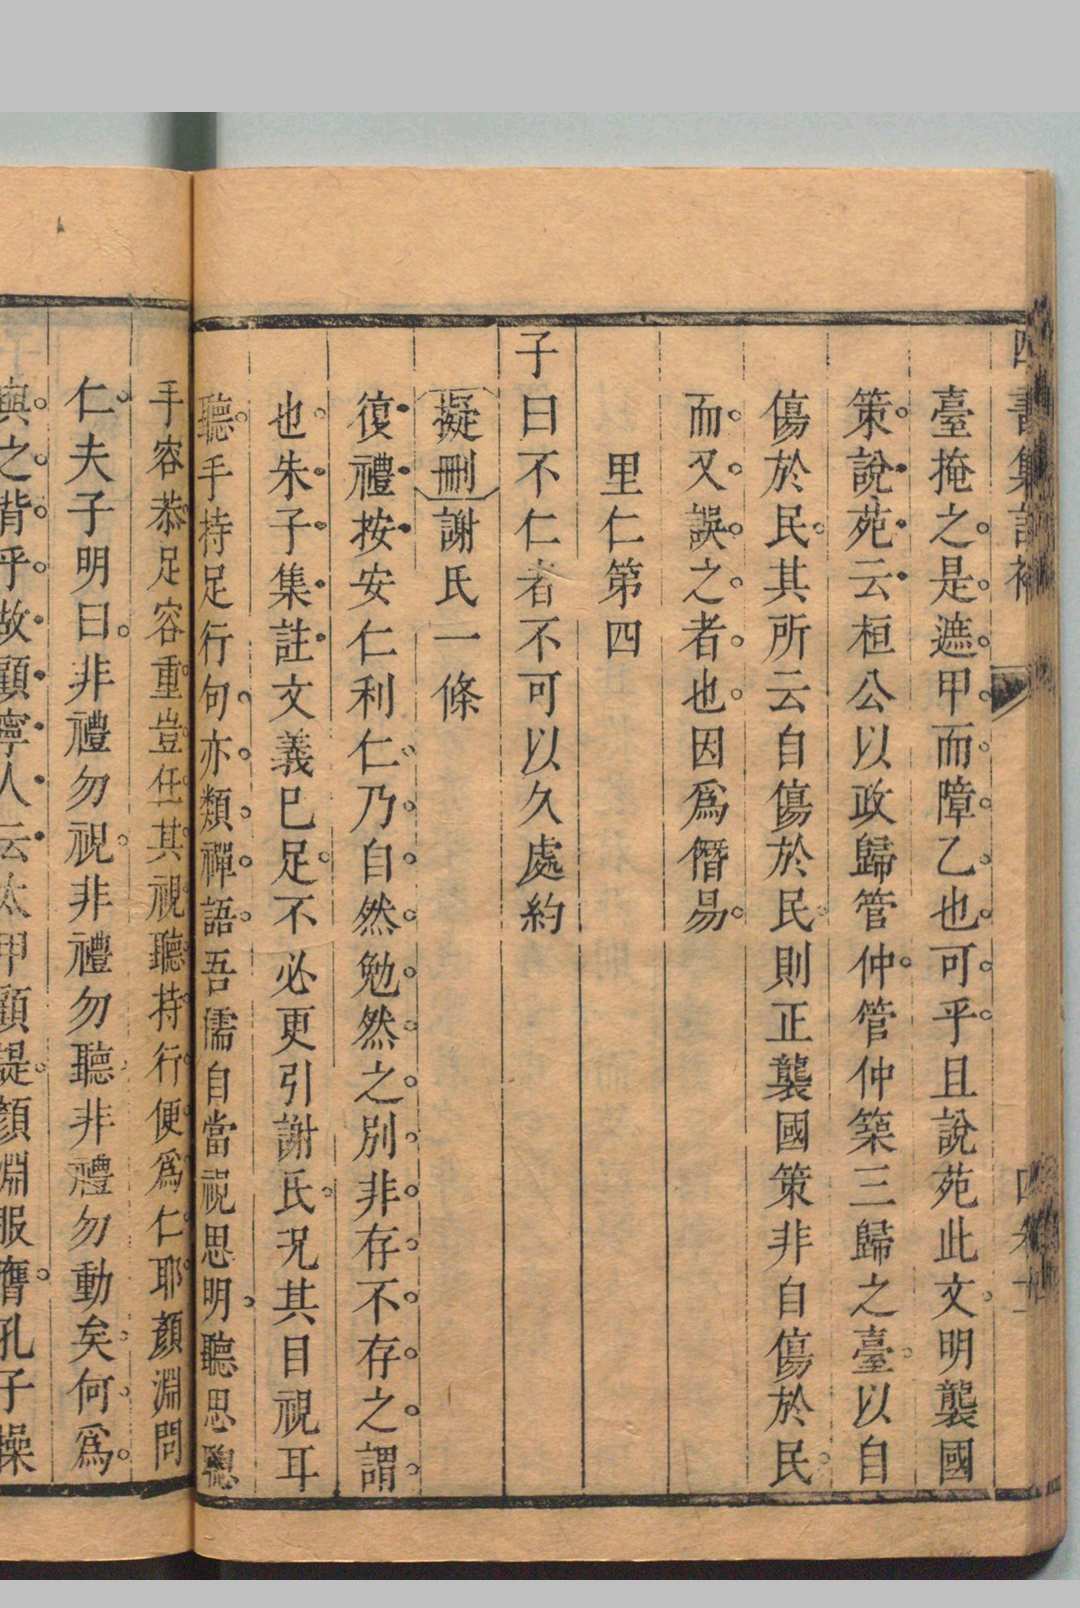 四書集註補
臺掩之是遮甲而障乙也可乎且說苑此文明襲國
策說苑云桓公以政歸管仲管仲築三歸之臺以自
傷於民其所云自傷於民則正襲國策非自傷於民
而又誤之者也因爲僭易
里仁第四
子曰不仁者不可以久處約
擬刪謝氏一條
復禮按安仁利仁乃自然勉然之別非存不存之謂
也朱子集註文義已足不必更引謝氏况其目視耳
聽手持足行句亦類禪語吾儒自當視思明聽思聰
手容恭足容重豈任其視聽持行便爲仁耶顏淵問
仁夫子明曰非禮勿視非禮勿聽非禮勿動矣何爲
與之背乎故顧寧人云太甲顧諟顏淵服膺孔子操